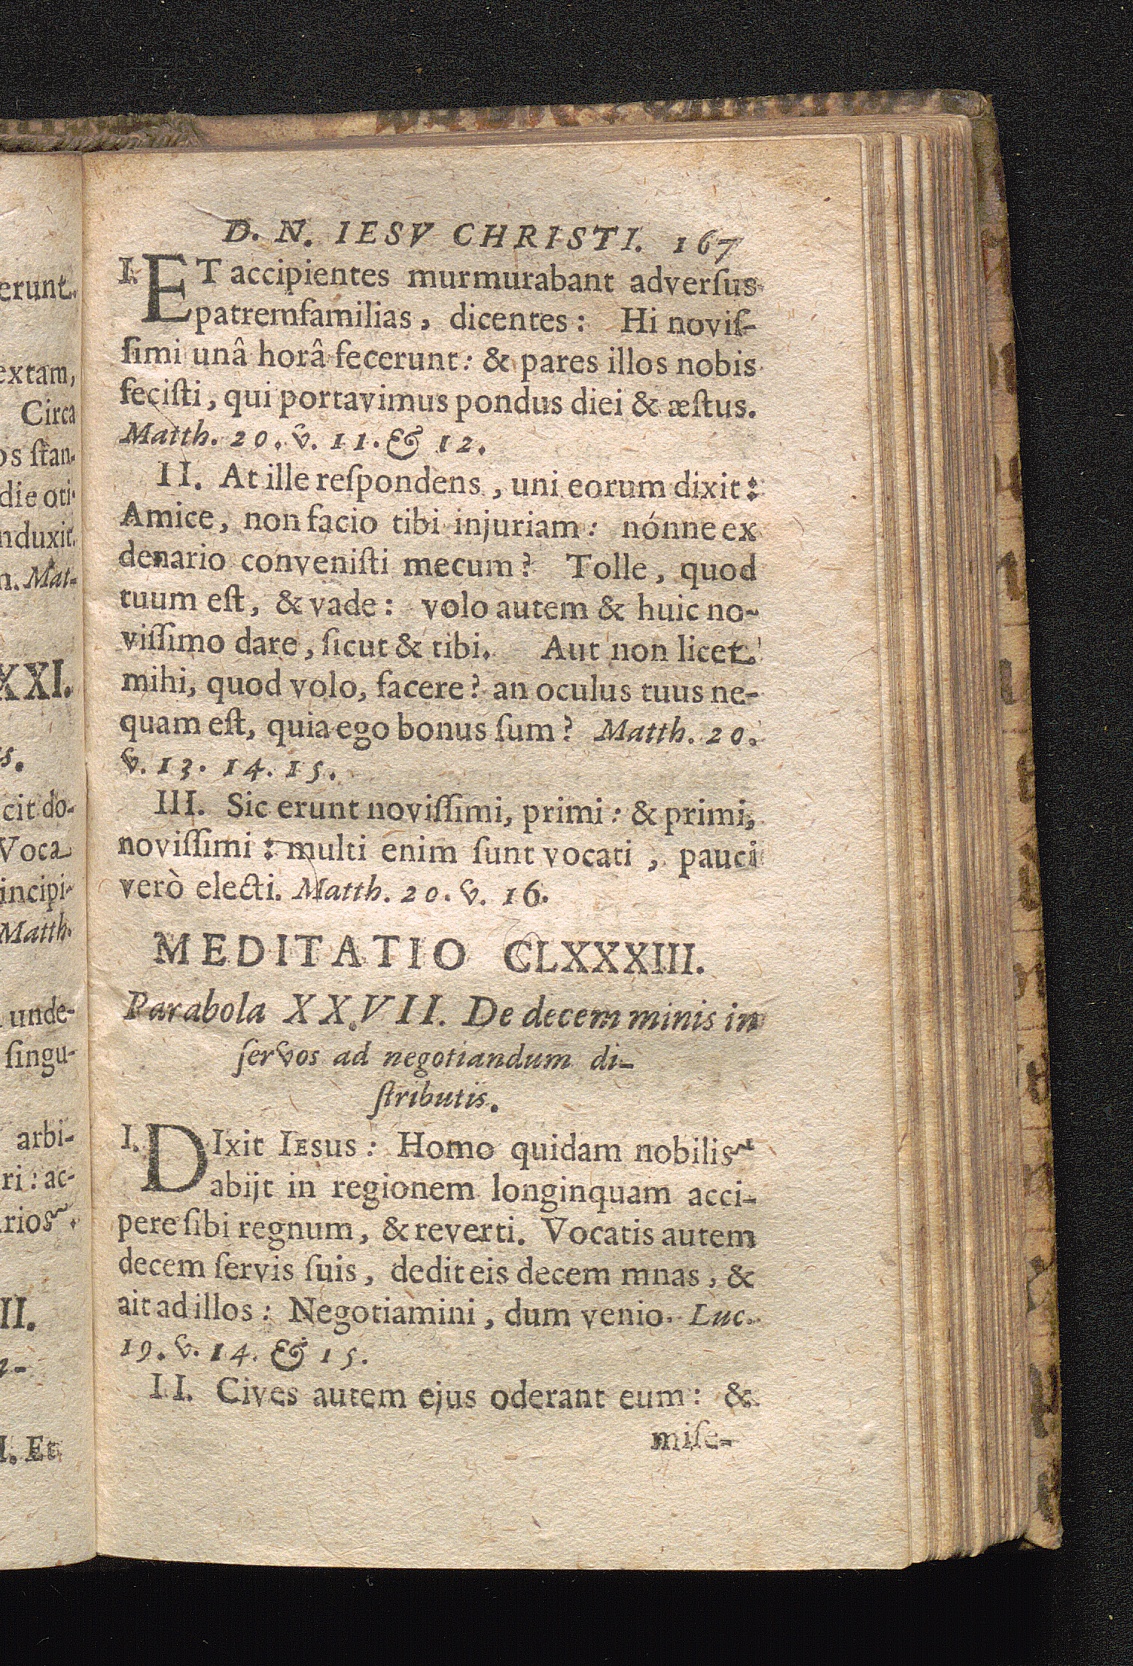 D. N. IESV CHRISTI. 167
I. ET accipientes murmurabant adverſus
patremfamilias, dicentes: Hi noviſ-
ſimi unâ horâ fecerunt: & pares illos nobis
feciſti, qui portavimus pondus diei & æſtus.
Matth. 20. v. 11. & 12.
II. At ille reſpondens, uni eorum dixit:
Amice, non facio tibi injuriam: nónne ex
denario conveniſti mecum? Tolle, quod
tuum eſt, & vade: volo autem & huic no-
viſſimo dare, ſicut & tibi. Aut non licet
mihi, quod volo, facere? an oculus tuus ne-
quam eſt, quia ego bonus ſum? Matth. 20.
v. 13. 14. 15.
III. Sic erunt noviſſimi, primi: & primi,
noviſſimi: multi enim ſunt vocati, pauci
verò electi. Matth. 20. v. 16.
MEDITATIO CLXXXIII.
Parabola XXVII. De decem minis in
ſervos ad negotiandum di-
ſtributis.
I. DIxit IESUS: Homo quidam nobilis
abijt in regionem longinquam acci-
pere ſibi regnum, & reverti. Vocatis autem
decem ſervis ſuis, dedit eis decem mnas, &
ait ad illos: Negotiamini, dum venio. Luc.
19. v. 14. & 15.
II. Cives autem ejus oderant eum: &
miſe-
erunt.
extam,
Circa
os ſtan-
die oti-
nduxit.
n. Mat-
XXI.
s.
cit do-
Voca
incipi-
Matth.
unde-
ſingu-
arbi-
ri: ac-
rios.
II.
I. Et